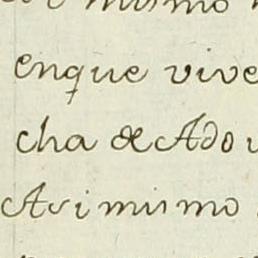 mismo
enque vive
cha de Ado
Asimismo